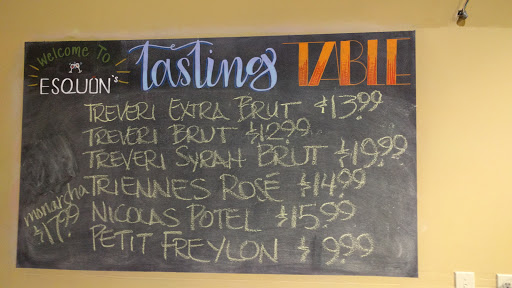 Welcome To
ESQUIN's
Tasting TABLE
TREVERI EXTRA BRUT $13.99
TREVERI BRUT $12.99
TREVERI SYRAH BRUT $19.99
TRIENNES ROSÉ $14.99
monarcha
$17.99
NICOLAS POTEL $15.99
PETIT FREYLON $9.99